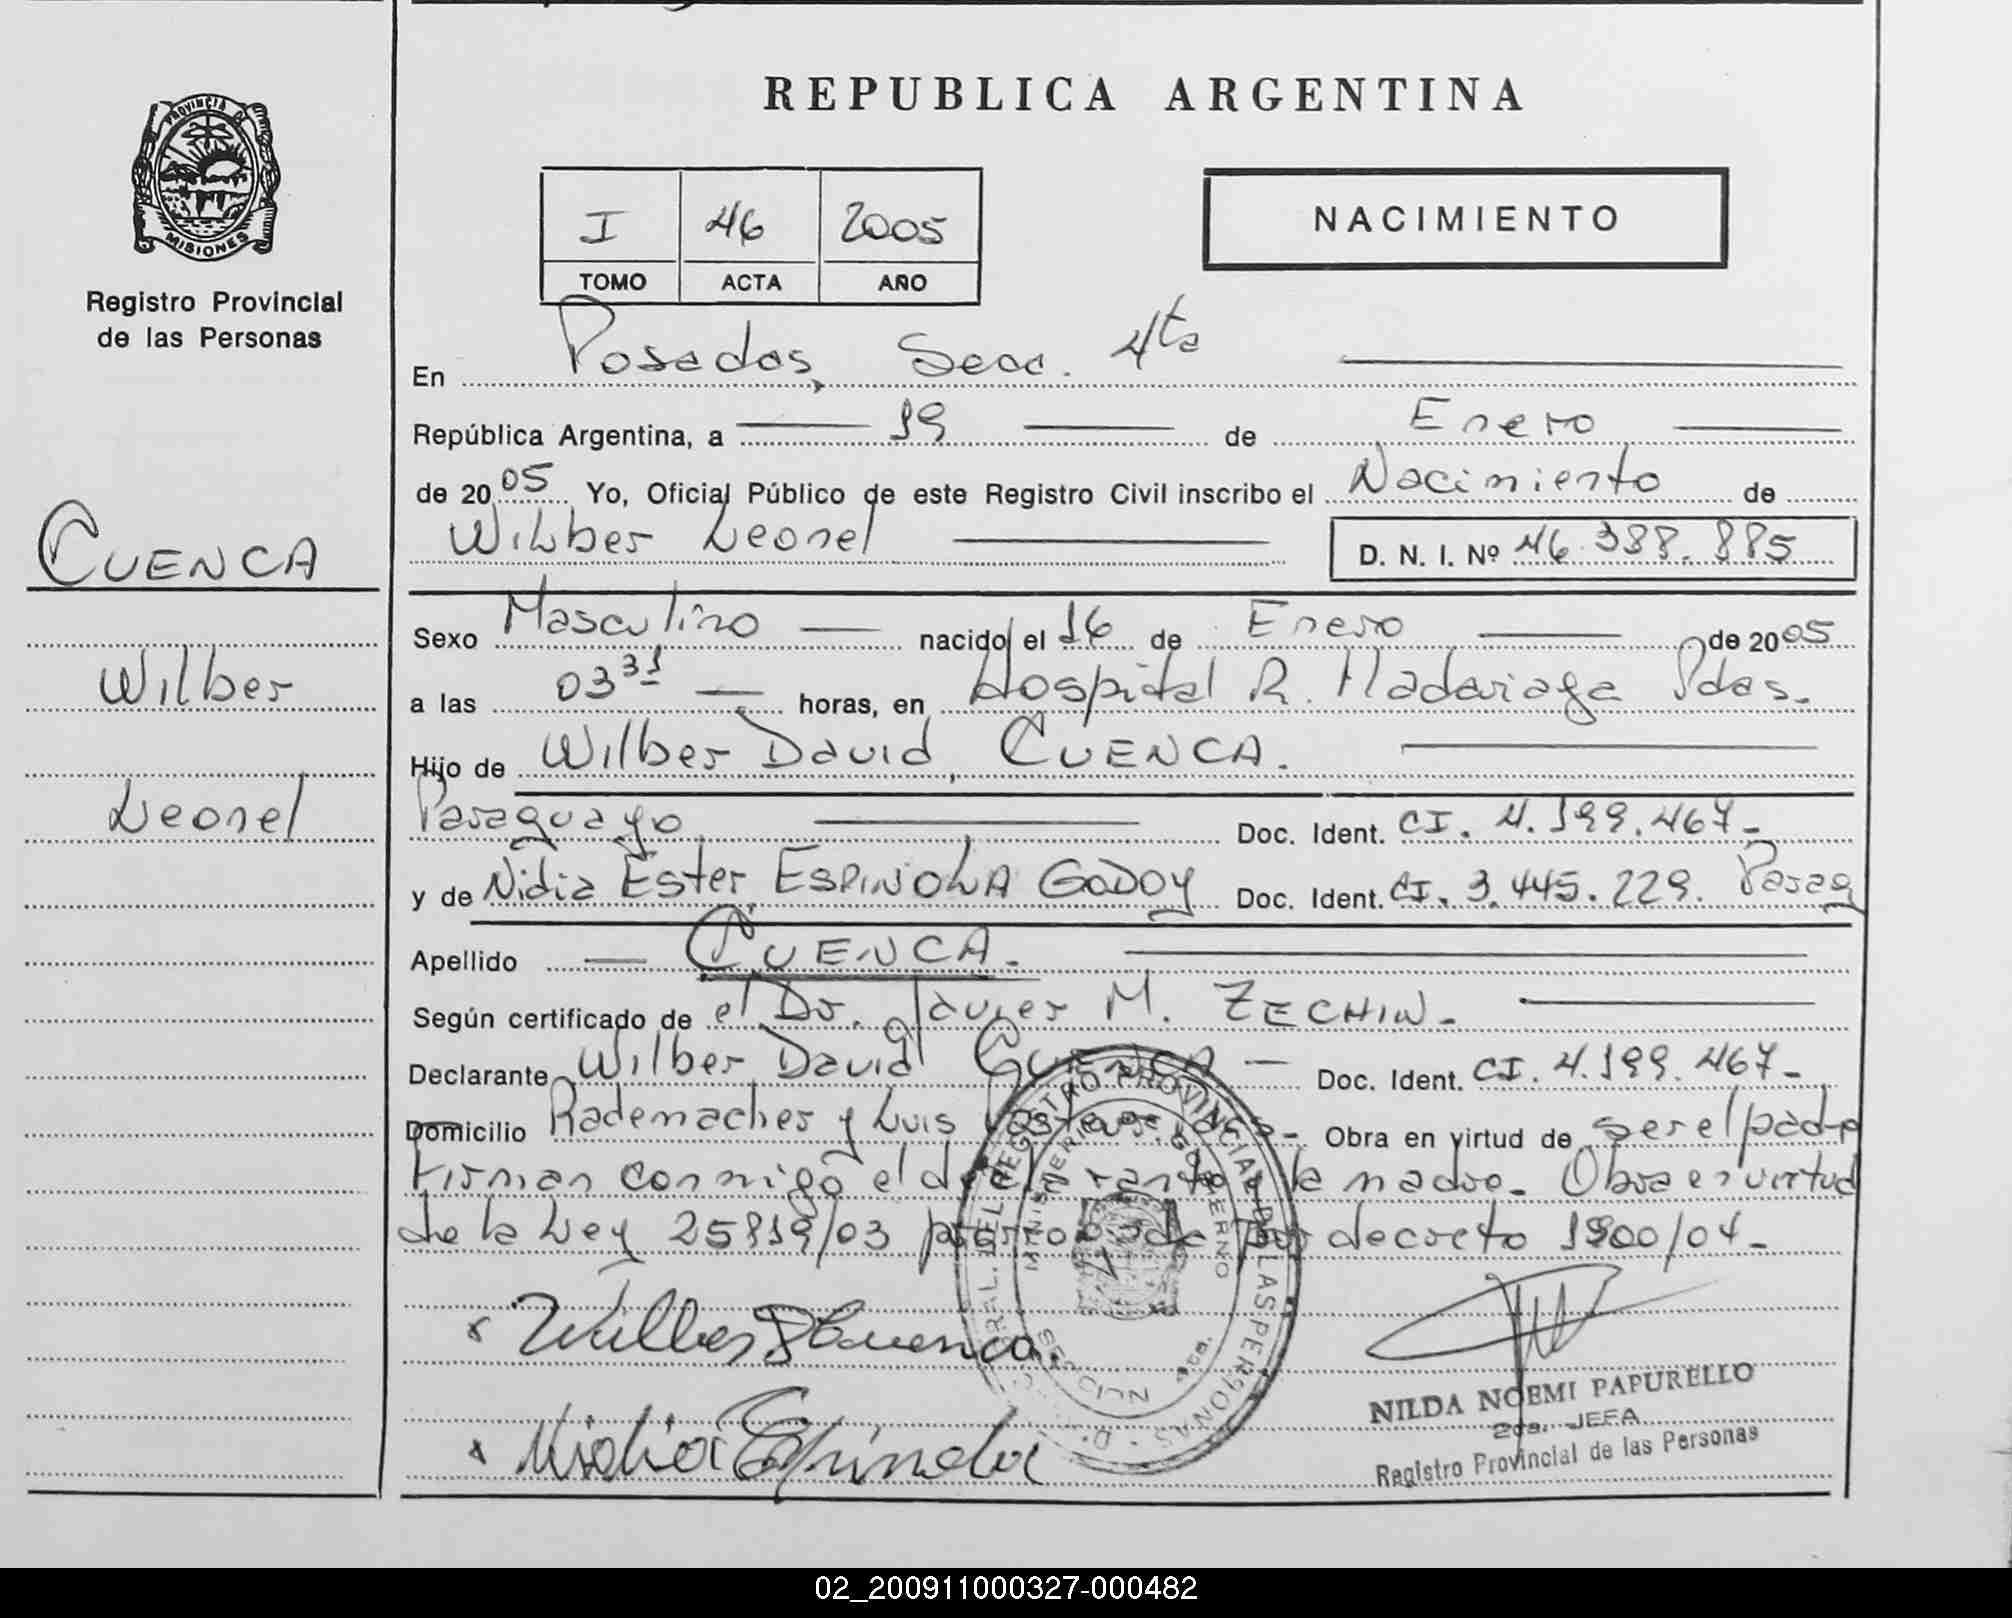 PROVINCIA DE
MISIONES
Registro Provincial
de las Personas
CUENCA
Wilber
Leonel
REPUBLICA ARGENTINA
I 46 2005
TOMO ACTA AÑO
NACIMIENTO
En Posadas, Secc. 4ta
República Argentina, a 19 de Enero
de 2005 Yo, Oficial Público de este Registro Civil inscribo el Nacimiento de
Wilber Leonel D. N. I. Nº 46.388.885
Sexo Masculino nacido el 16 de Enero de 2005
a las 03 31 horas, en Hospital R. Madariaga Pdas.
Hijo de Wilber David, CUENCA.
Paraguayo Doc. Ident. CI. 4.199.467-
y de Nidia Ester, ESPINOLA GODOY Doc. Ident. CI. 3.445.229. Parag
Apellido CUENCA.
Según certificado de el Dr. Javier M. ZECHIN-
Declarante Wilber David CUENCA - Doc. Ident. CI. 4.199.467-
Domicilio Rademacher y Luis Pdas- Obra en virtud de ser el padre
Firman conmigo el declarante y la madre. Obra en virtud
de la Ley 25819/03 prorrogada por decreto 1900/04-
x Wilber D Cuenca.
x Nidia Espinola
REGISTRO PROVINCIAL DE LAS PERSONAS
MINISTERIO DE GOBIERNO
4ta.
NILDA NOEMI PAPURELLO
2da. JEFA
Registro Provincial de las Personas
02_200911000327-000482